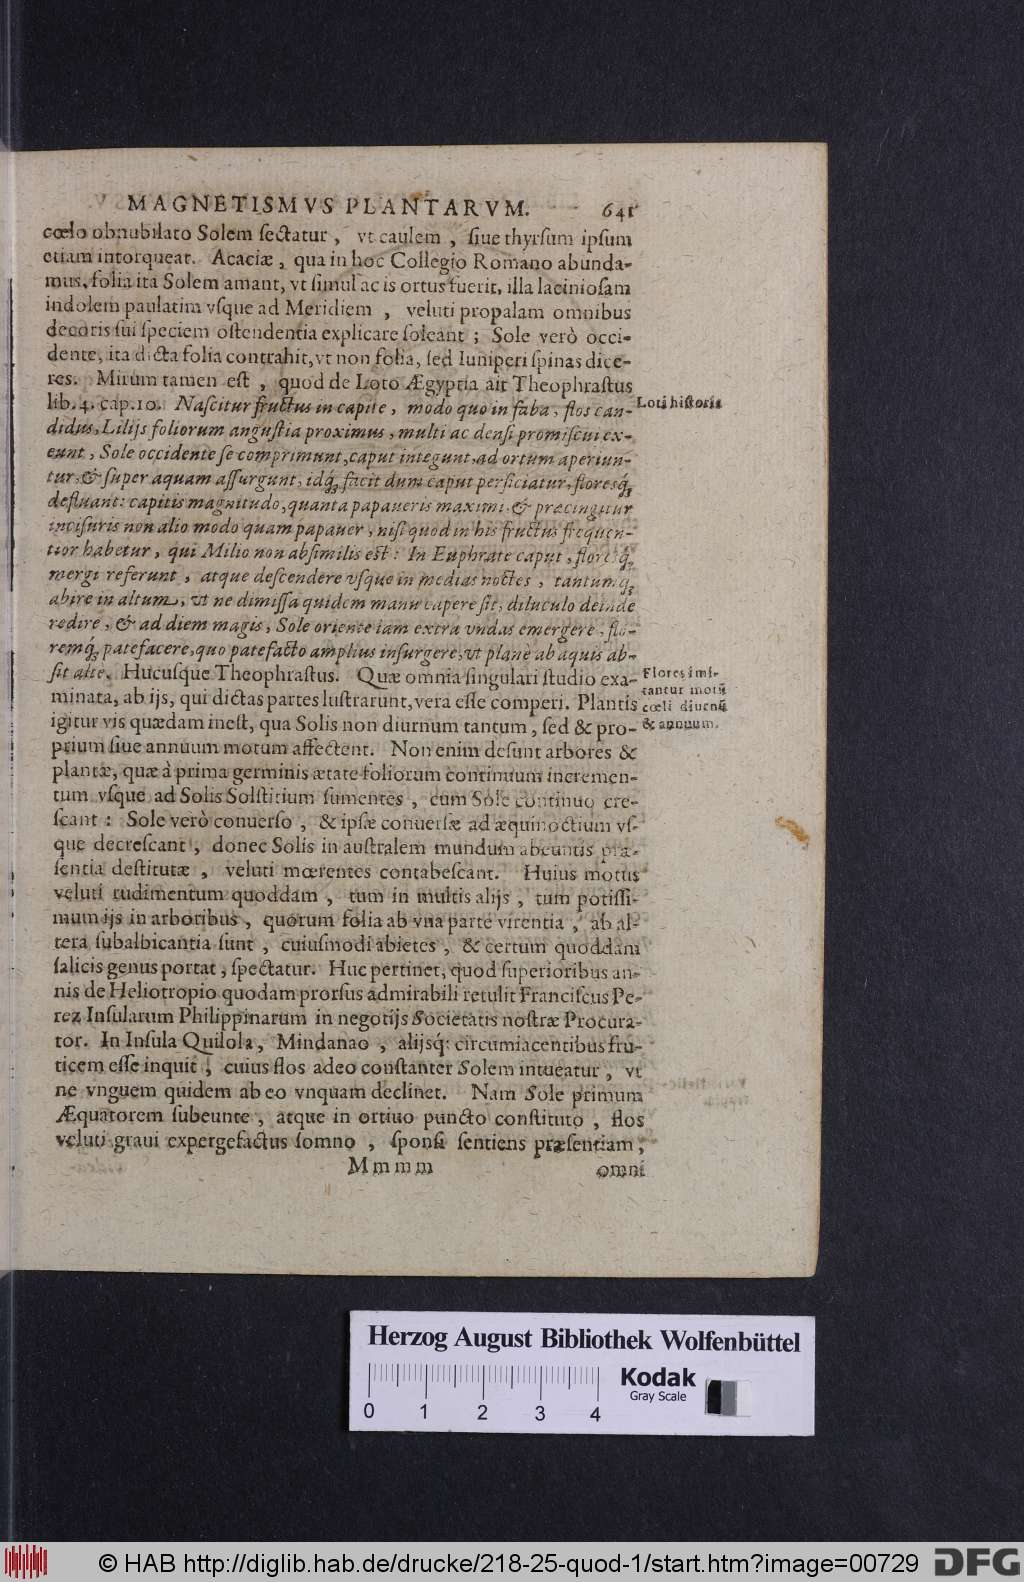 MAGNETISMVS PLANTARVM. 641
cœlo obnubilato Solem ſectatur, vt caulem, ſiue thyrſum ipſum
etiam intorqueat. Acaciæ, qua in hoc Collegio Romano abunda-
mus, folia ita Solem amant, vt ſimul ac is ortus fuerit, illa lacinioſam
indolem paulatim vſque ad Meridiem, veluti propalam omnibus
decoris ſui ſpeciem oſtendentia explicare ſoleant; Sole verò occi-
dente, ita dicta folia contrahit, vt non folia, ſed Iuniperi ſpinas dice-
res. Mirum tamen eſt, quod de Loto Ægyptia ait Theophraſtus
lib. 4. cap. 10. Naſcitur fructus in capite, modo quo in faba, flos can-
Loti hiſtoria
didus, Lilijs foliorum anguſtia proximus, multi ac denſi promiſcui ex-
eunt, Sole occidente ſe comprimunt, caput integunt, ad ortum aperiun-
tur, & ſuper aquam aſſurgunt, idq́; facit dum caput perficiatur, floresq́;
defluant: capitis magnitudo, quanta papaueris maximi, & præcingitur
inciſuris non alio modo quam papauer, niſi quod in his fructus frequen-
tior habetur, qui Milio non abſimilis eſt: In Euphrate caput, floresq́;
mergi referunt, atque deſcendere vſque in medias noctes, tantumq́;
abire in altum, vt ne dimiſſa quidem manu capere ſit, diluculo deinde
redire, & ad diem magis, Sole oriente iam extra vndas emergere, flo-
remq́; patefacere, quo patefacto amplius inſurgere, vt planè ab aquis ab-
ſit alte. Hucuſque Theophraſtus. Quæ omnia ſingulari ſtudio exa-
minata, ab ijs, qui dictas partes luſtrarunt, vera eſſe comperi. Plantis
igitur vis quædam ineſt, qua Solis non diurnum tantum, ſed & pro-
Flores imi-
tantur motū
cœli diurnū
& annuum.
prium ſiue annuum motum affectent. Non enim deſunt arbores &
plantæ, quæ à prima germinis ætate foliorum continuum incremen-
tum vſque ad Solis Solſtitium ſumentes, cum Sole continuo cre-
ſcant: Sole verò conuerſo, & ipſæ conuerſæ ad æquinoctium vſ-
que decreſcant, donec Solis in auſtralem mundum abeuntis præ-
ſentia deſtitutæ, veluti mœrentes contabeſcant. Huius motus
veluti rudimentum quoddam, tum in multis alijs, tum potiſſi-
mum ijs in arboribus, quorum folia ab vna parte virentia, ab al-
tera ſubalbicantia ſunt, cuiuſmodi abietes, & certum quoddam
ſalicis genus portat, ſpectatur. Huc pertinet, quod ſuperioribus an-
nis de Heliotropio quodam prorſus admirabili retulit Franciſcus Pe-
rez Inſularum Philippinarum in negotijs Societatis noſtræ Procura-
tor. In Inſula Quilola, Mindanao, alijsq́; circumiacentibus fru-
ticem eſſe inquit, cuius flos adeo conſtanter Solem intueatur, vt
ne vnguem quidem ab eo vnquam declinet. Nam Sole primum
Æquatorem ſubeunte, atque in ortiuo puncto conſtituto, flos
veluti graui expergefactus ſomno, ſponſi ſentiens præſentiam,
Mmmm omni
Herzog August Bibliothek Wolfenbüttel
Kodak
Gray Scale
0 1 2 3 4
© HAB http://diglib.hab.de/drucke/218-25-quod-1/start.htm?image=00729
DFG